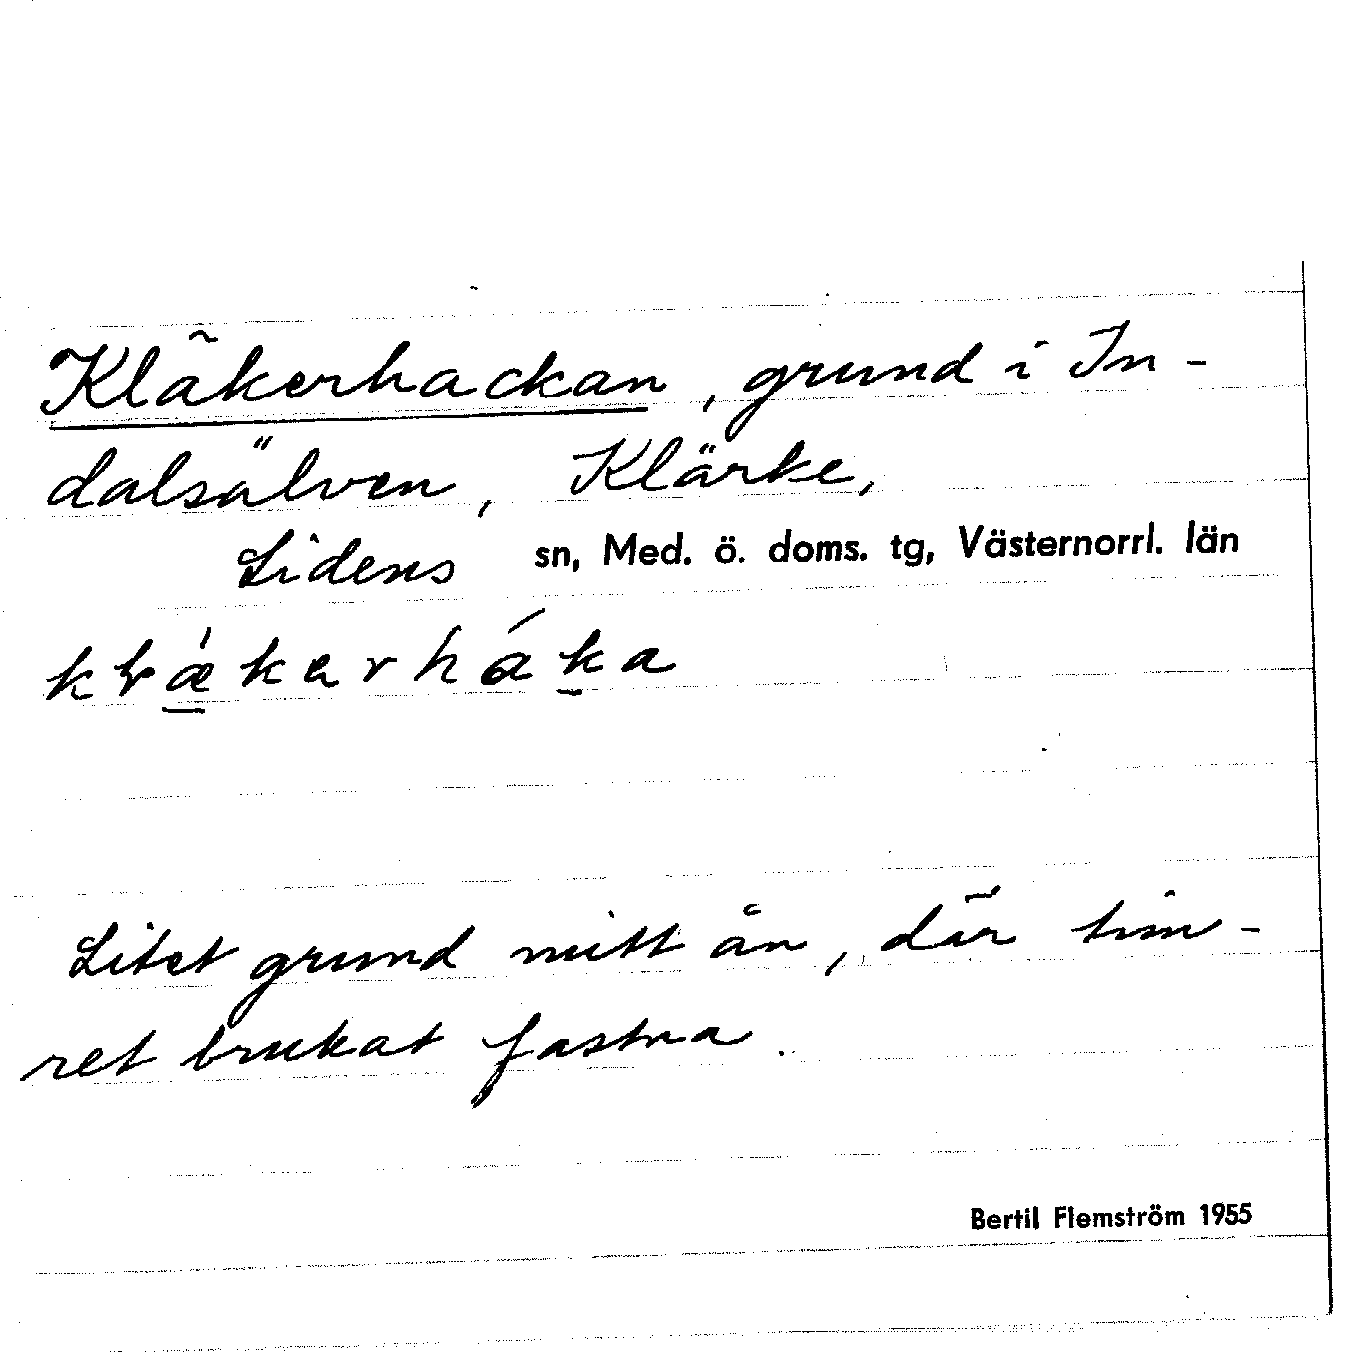 Kläkerhackan, grund i In-
dalsälven, Klärke,
Lidens sn, Med. ö. doms. tg, Västernorrl. län
Litet grund mitt ån, där tim-
ret brukat fastna.
Bertil Flemström 1955